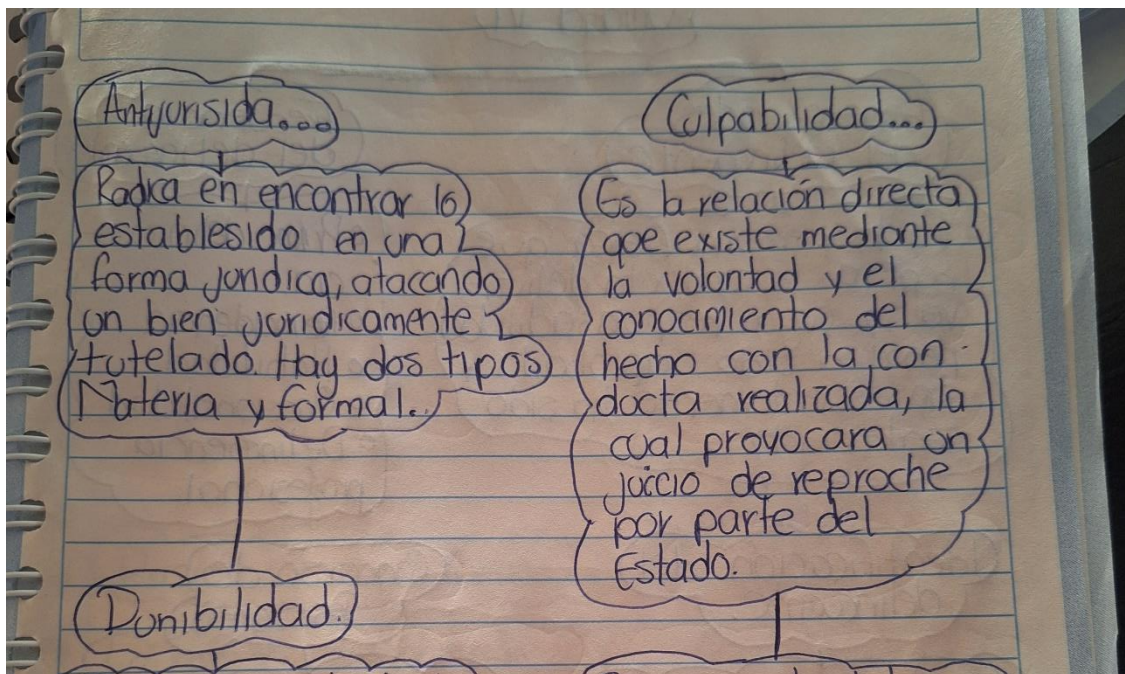 Antyurisida...
Radica en encontrar lo
establesido en una
forma juridica, atacando
un bien juridicamente
tutelado. Hay dos tipos
Materia y formal.
Punibilidad.
Culpabilidad...
Es la relación directa
que existe mediante
la volontad y el
conocimiento del
hecho con la con-
ducta realizada, la
cual provocara un
juicio de reproche
por parte del
Estado.